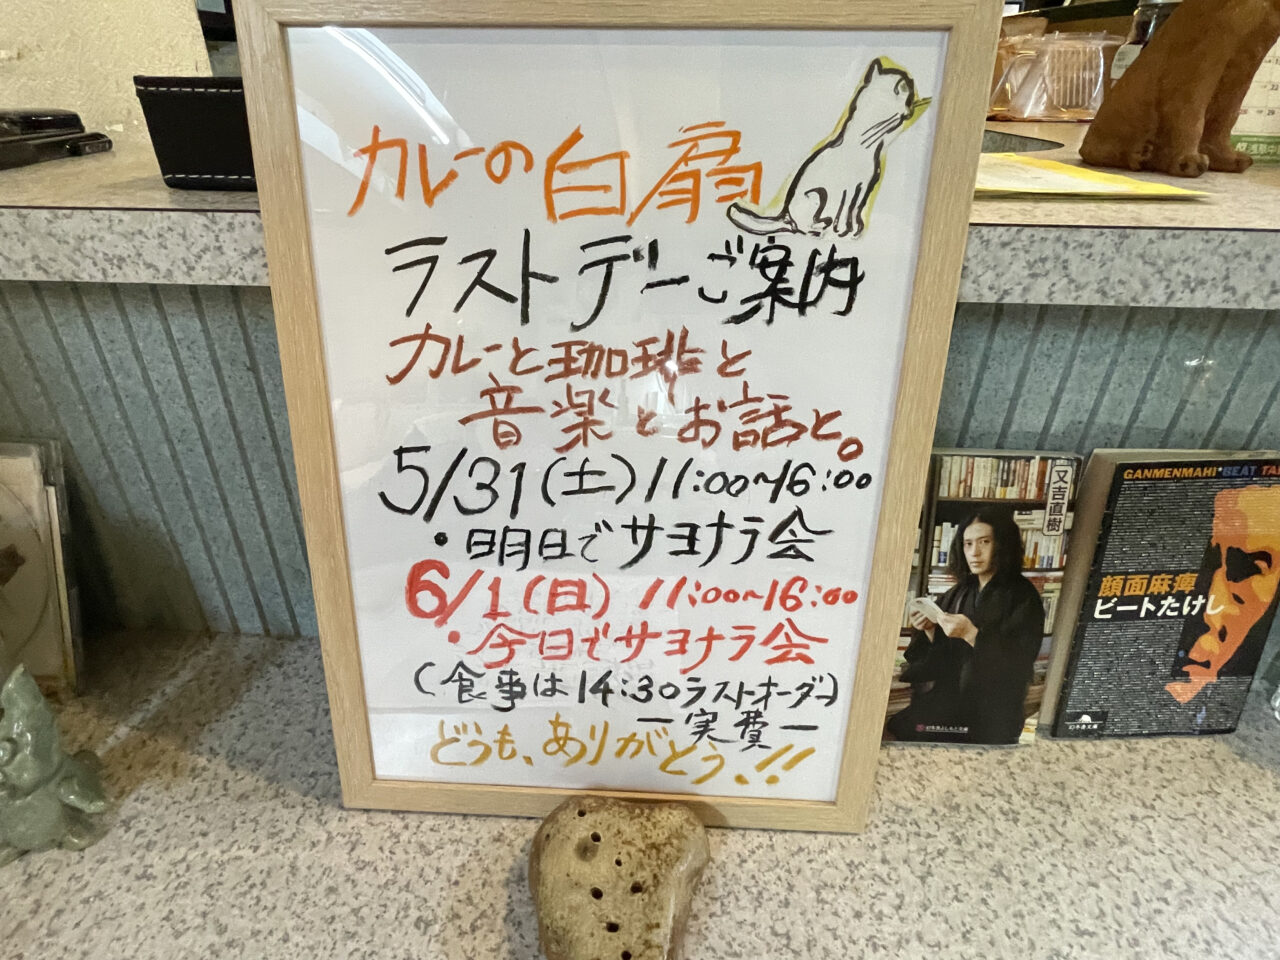 カレーの白扇
ラストデーご案内
カレーと珈琲と
音楽とお話と。
5/31(土)11:00~16:00
・明日でサヨナラ会
6/1(日)11:00~16:00
・今日でサヨナラ会
(食事は14:30ラストオーダー)
ー実費ー
どうも、ありがとう、!!
又吉直樹
GANMENMAHI BEAT TA
顔面麻痺
ビートたけし